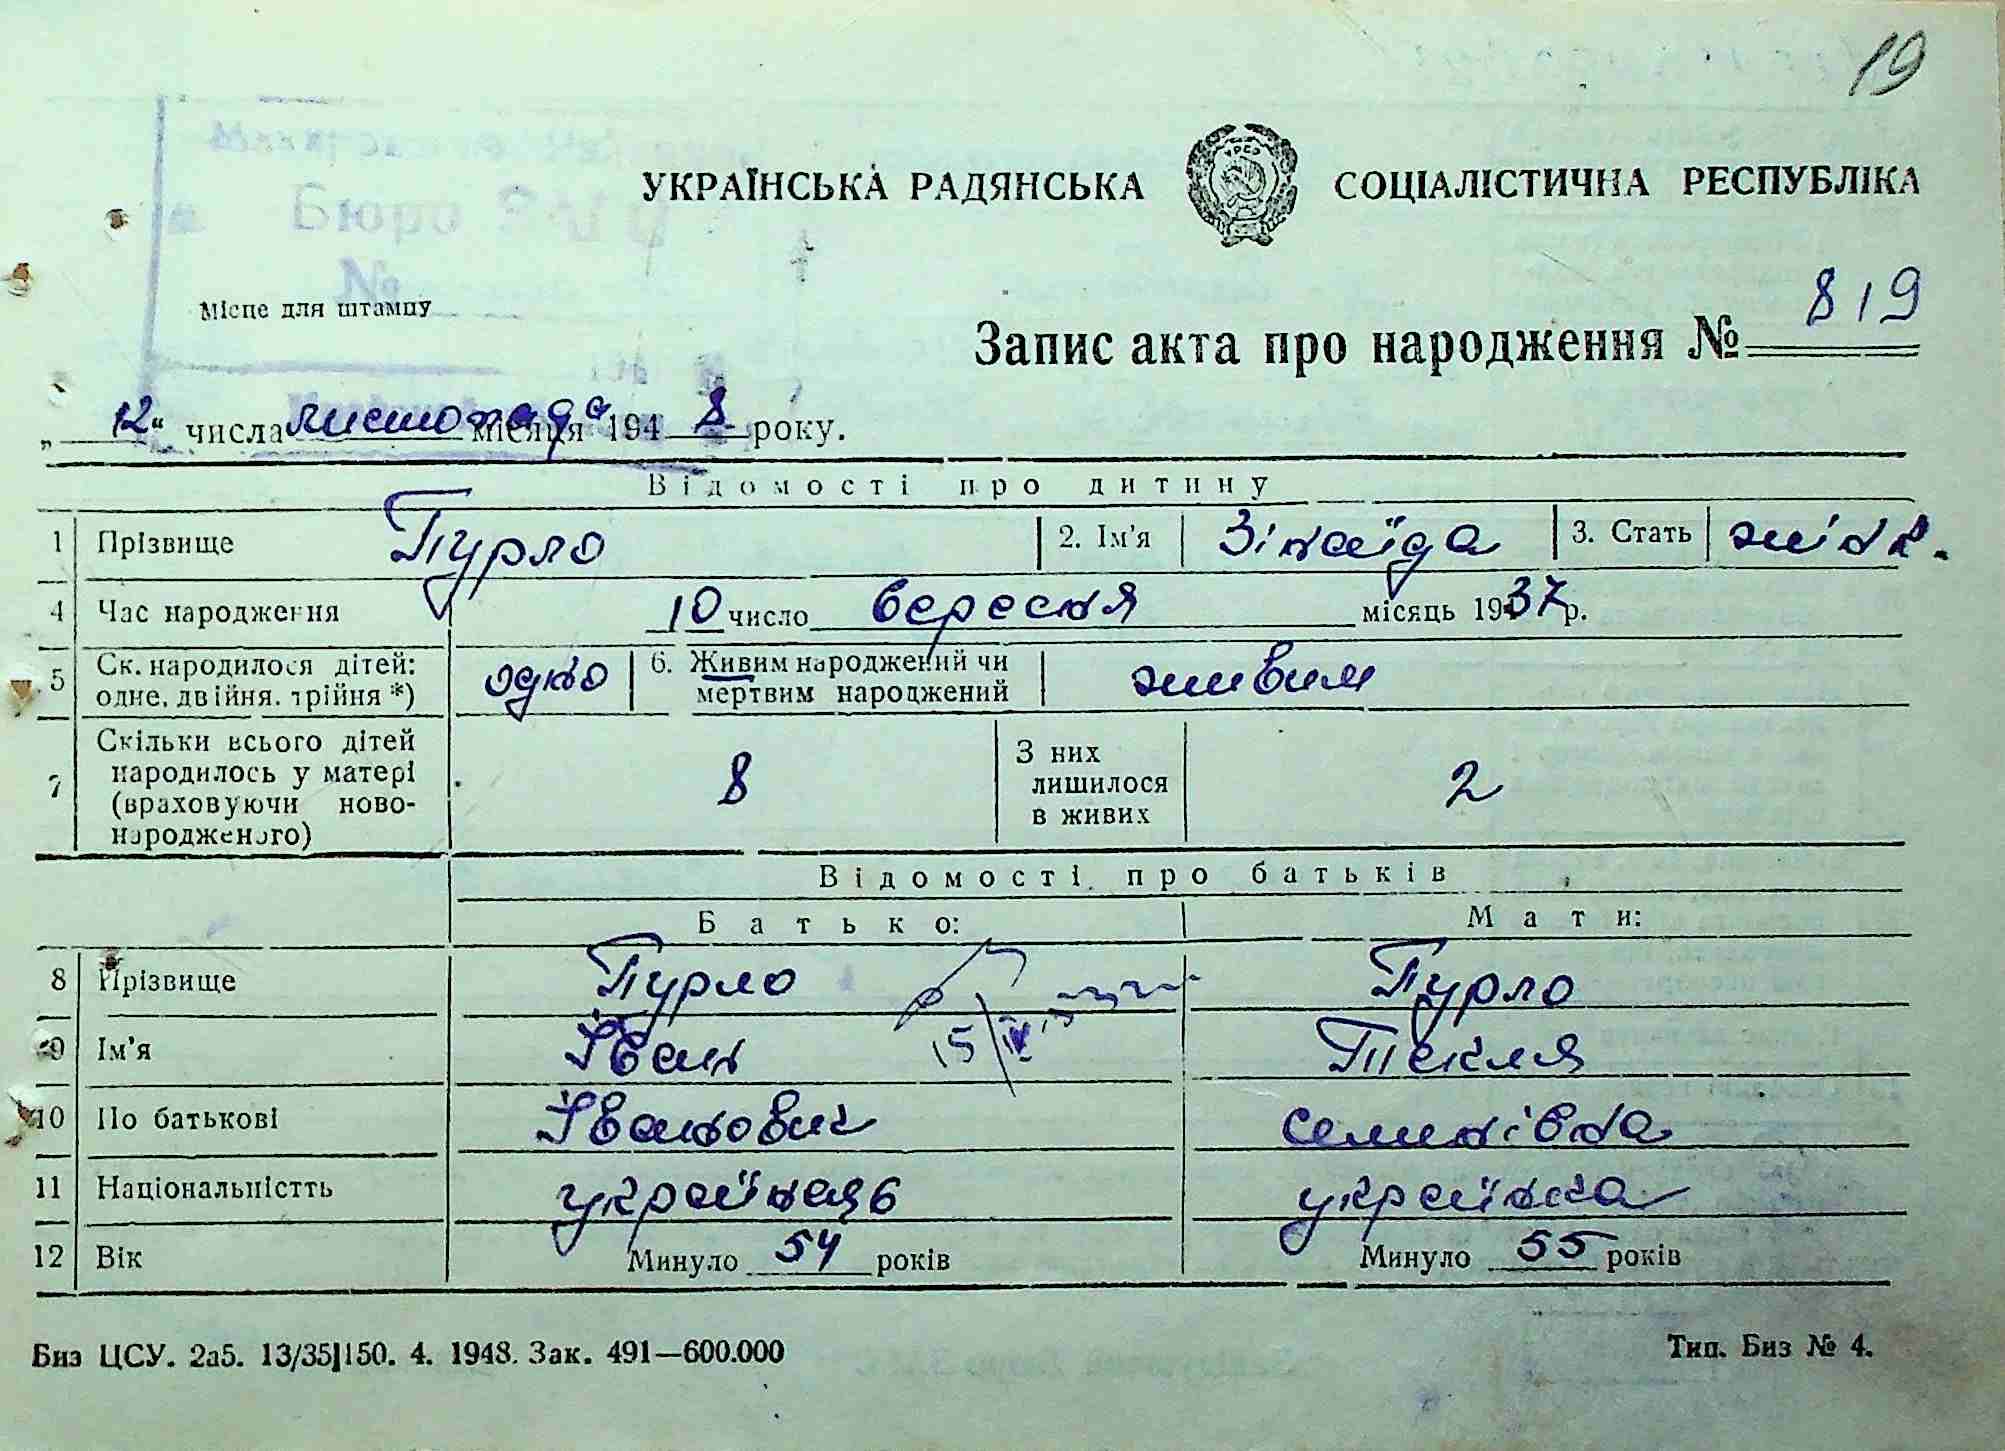 19
УКРАЇНСЬКА РАДЯНСЬКА СОЦІАЛІСТИЧНА РЕСПУБЛІКА
УРСР
Бюро
№
Місце для штампу
Запис акта про народження № 819
„ 12 “ числа листопада місяця 194 8 року.
Відомості про дитину
1 Прізвище Пурло 2. Ім’я Зінаїда 3. Стать жінк.
4 Час народження 10 число вересня місяць 1937 р.
5 Ск. народилося дітей: одне, двійня, трійня *) одно 6. Живим народжений чи мертвим народжений живим
7 Скільки всього дітей народилось у матері (враховуючи ново-народженого) 8 З них лишилося в живих 2
Відомості про батьків
Батько: Мати:
8 Прізвище Пурло Пурло
9 Ім’я Іван Текля
15/IV
10 По батькові Іванович Семинівна
11 Національністть українець українка
12 Вік Минуло 54 років Минуло 55 років
Биз ЦСУ. 2а5. 13/35|150. 4. 1948. Зак. 491—600.000 Тип. Биз № 4.